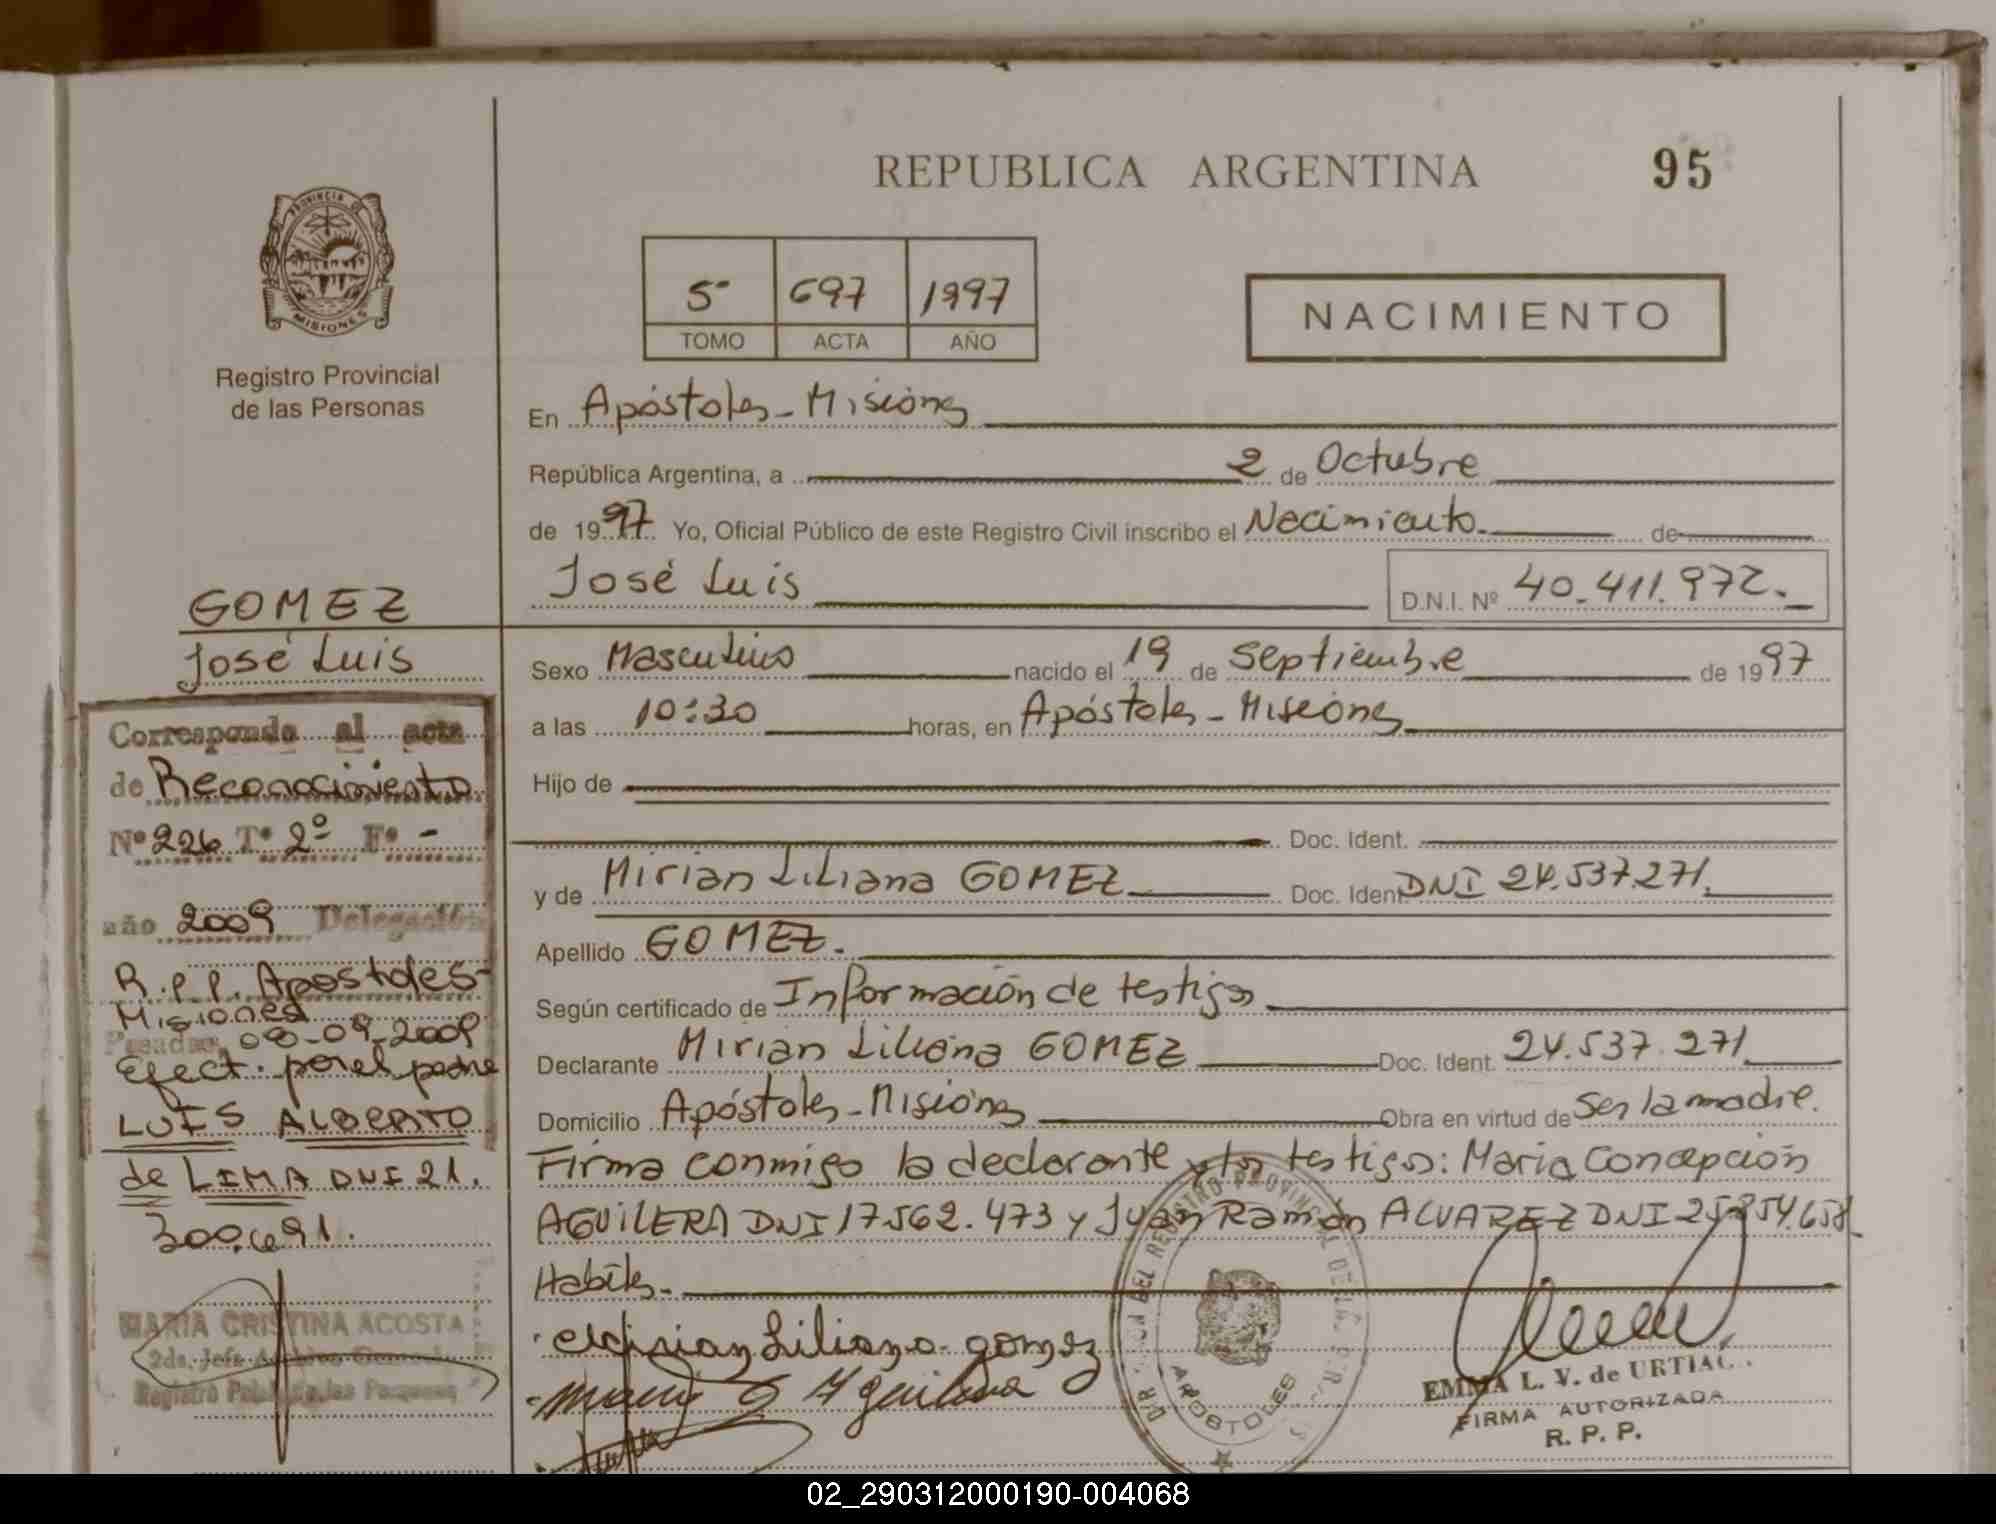 REPUBLICA ARGENTINA
95
PROVINCIA DE
MISIONES
Registro Provincial
de las Personas
5º 697 1997
TOMO ACTA AÑO
NACIMIENTO
En Apóstoles - Misiones
República Argentina, a 2 de Octubre
de 1997 Yo, Oficial Público de este Registro Civil inscribo el Nacimiento. de
José Luis D.N.I. Nº 40.411.972.
GOMEZ
José Luis
Corresponde al acta
de Reconocimiento
Nº 226 Tº 2º Fº -
año 2009 Delegación
R.P.P. Apostoles-
Misiones
Posadas, 08-09-2009
Efect. por el padre
LUIS ALBERTO
de LIMA DNI 21.
300.691.
MARIA CRISTINA ACOSTA
Sexo Masculino nacido el 19 de Septiembre de 1997
a las 10:30 horas, en Apóstoles - Misiones
Hijo de
Doc. Ident.
y de Mirian Liliana GOMEZ Doc. Ident DNI 24.537.271.
Apellido GOMEZ.
Según certificado de Información de testigos
Declarante Mirian Liliana GOMEZ Doc. Ident. 24.537.271
Domicilio Apóstoles - Misiones Obra en virtud de Ser la madre.
Firma conmigo la declarante y los testigos: Maria Concepción
AGUILERA DNI 17.562.473 y Juan Ramón ALVAREZ DNI
Habiles.
Mirian Liliana gomez
Aguilera
APOSTOLES
EMMA L. V. de
FIRMA AUTORIZADA
R. P. P.
02_290312000190-004068